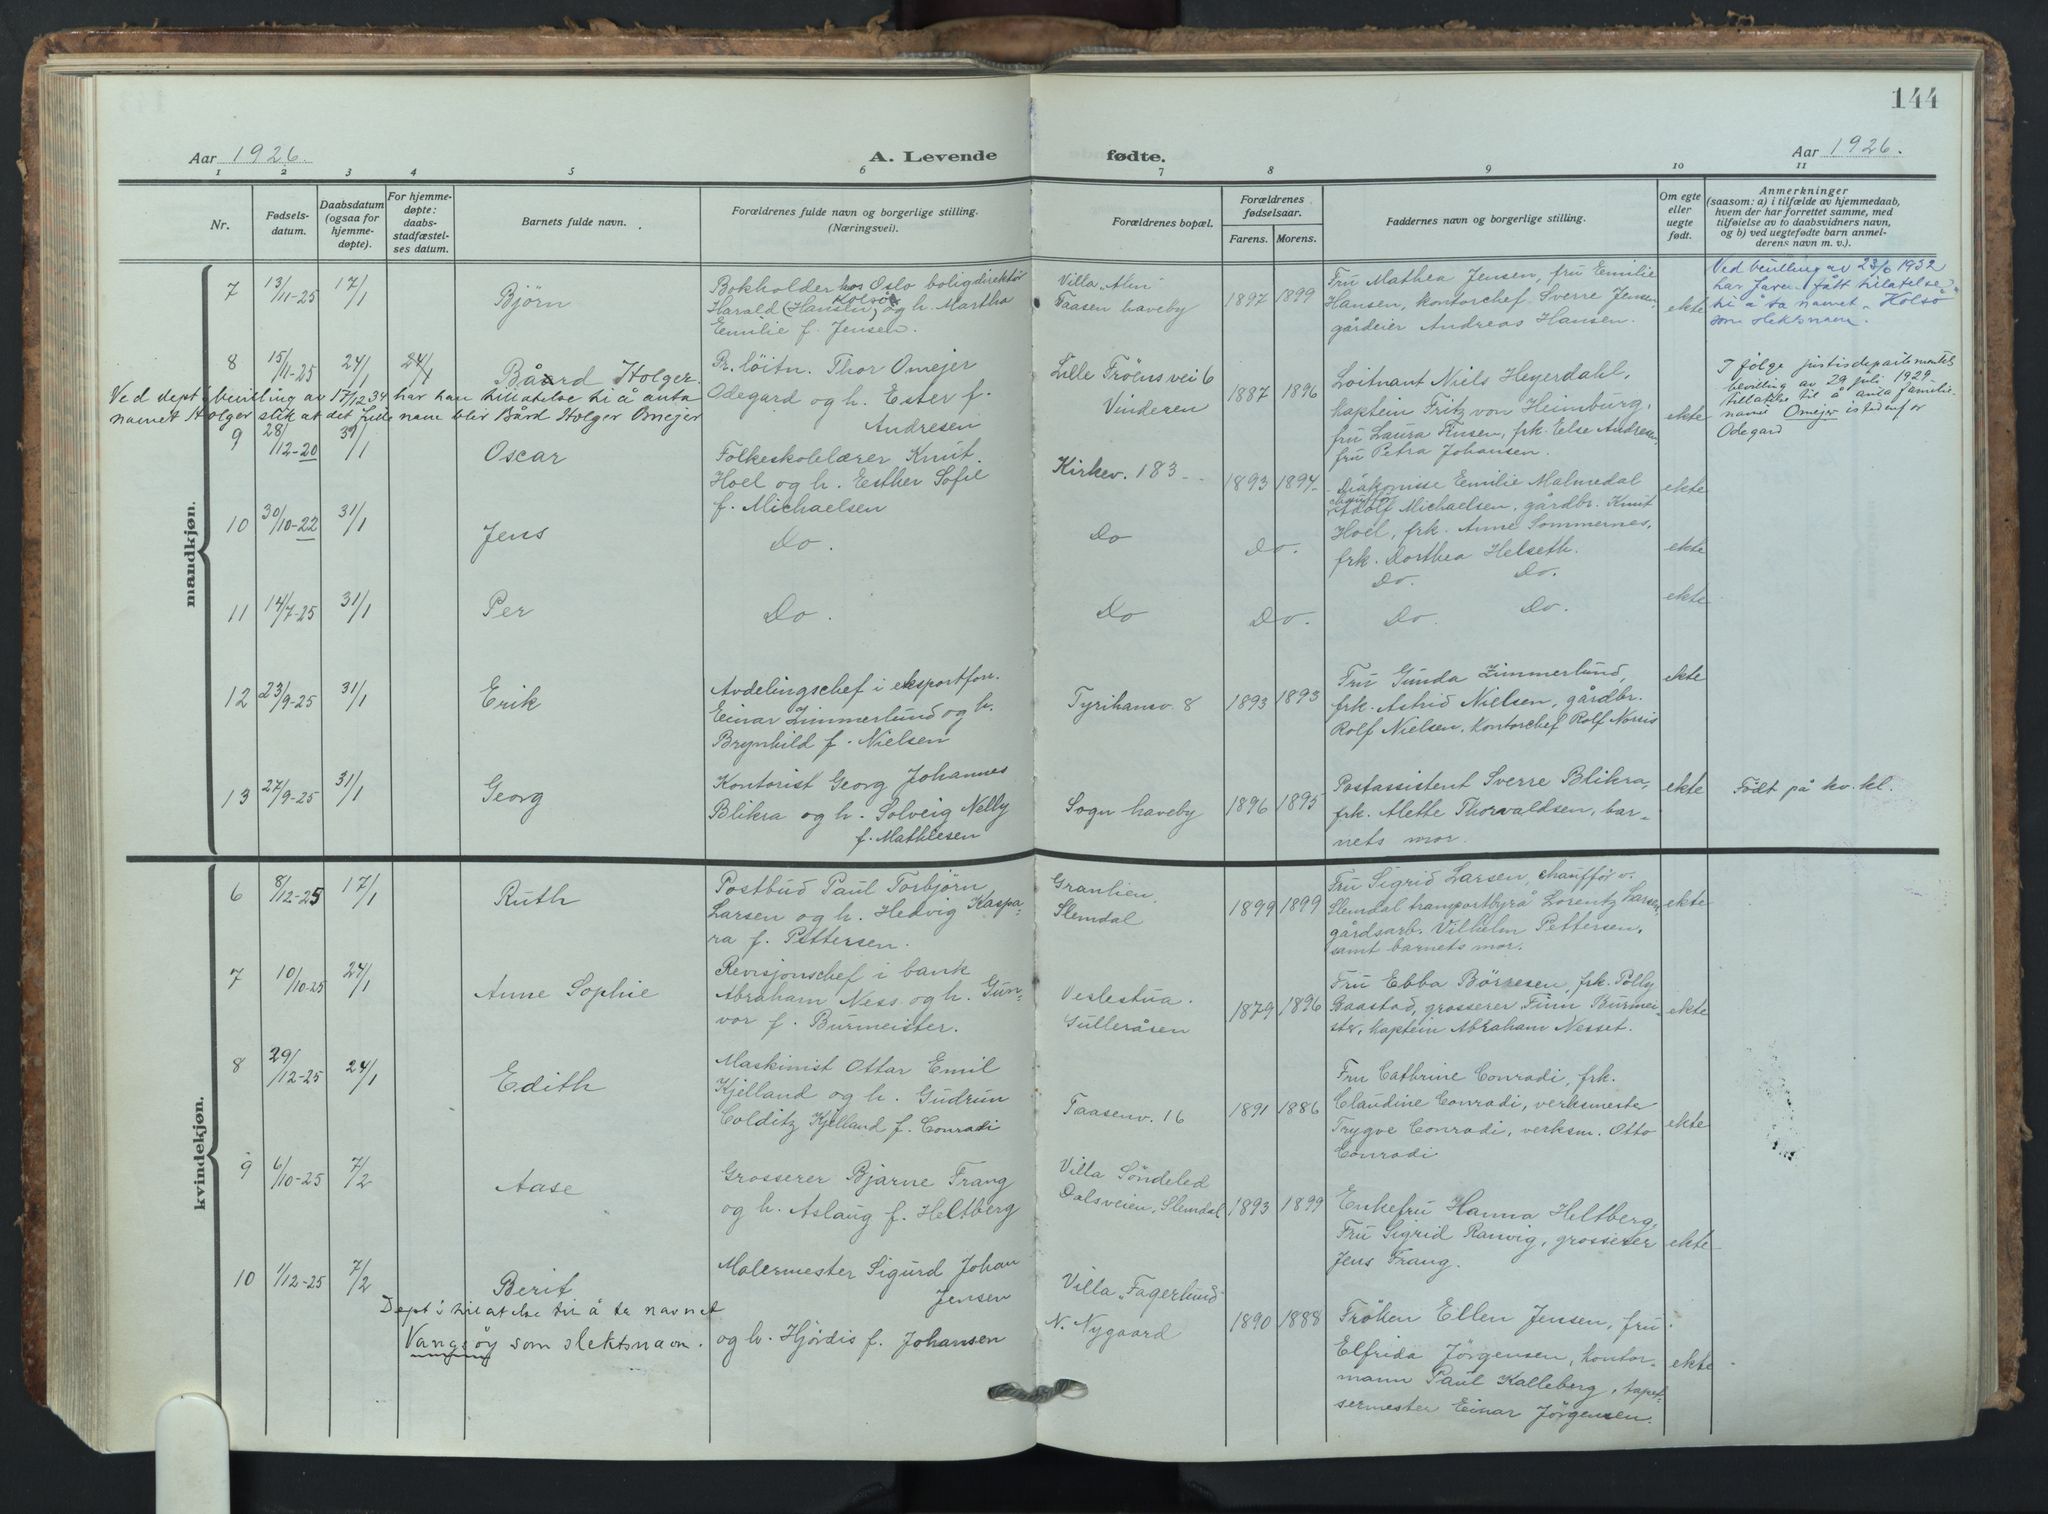 144
Aar 1926.
A. Levende fødte.
Aar 1926.
1 2 3 4 5 6 7 8 9 10 11
Nr.
Fødsels-
datum.
Daabsdatum
(ogsaa for
hjemme-
døpte).
For hjemme-
døpte:
daabs-
stadfæstel-
ses datum.
Barnets fulde navn.
Forældrenes fulde navn og borgerlige stilling.
(Næringsvei).
Forældrenes bopæl.
Forældrenes
fødselsaar.
Farens. Morens.
Faddernes navn og borgerlige stilling.
Om egte
eller
uegte
født.
Anmerkninger
(saasom: a) i tilfælde av hjemmedaab,
hvem der har forrettet samme, med
tilføielse av to daabsvidners navn,
og b) ved uegtefødte barn anmel-
derens navn m. v.).
mandkjøn.
7 13/11-25 17/1 Björn
Bokholder hos Oslo boligdirektör
Harald (Hansen) Kolsö og h. Martha
Emilie f. Jensen.
Villa "Alm"
Taasen haveby
1897 1899
Fru Mathea Jensen, fru Emilie
Hansen, kontorchef Sverre Jensen,
gårdeier Andreas Hansen.
ekte
Ved bevilling av 23/6 1932
har faren fått tillatelse
til å ta navnet "Kolsö"
som slektsnavn.
8 15/11-25 24/1 24/1 Bård Holger.
Pr. löitn. Thor Omejer
Odegard og h. Ester f.
Andresen
Lille Fröens vei 6
Vinderen
1887 1896
Löitnant Niels Heyerdahl,
kaptein Fritz von Heimburg,
fru Laura Ihlsen, frk. Else Andresen,
fru Petra Johansen.
ekte
I følge justisdepartementets
bevilling av 29 juli 1929
tillatelse til å anta familie-
navne Omejer istedenfor
Odegard
Ved dept's bevilling av 17/12 34 har han tillatelse til å anta
navnet Holger slik at det fulle navn blir Bård Holger Omejer
9 28/12-20 31/1 Oscar
Folkeskolelærer Knut
Hoel og h. Esther Sofie
f. Michaelsen
Kirkev. 183
1893 1894
Diakonisse Emilie Malmedal
chaufför Adolf Michaelsen, gårdbr. Knut
Hoel, frk. Anne Sommernes,
frk. Dorthea Helseth.
ekte
10 30/10-22 31/1 Jens
Do.
Do
Do.
Do. Do.
ekte
11 14/7-25 31/1 Per
Do.
Do
Do.
Do. Do.
ekte
12 23/9-25 31/1 Erik
Avdelingschef i eksportforr.
Einar Zimmerlund og h.
Brynhild f. Nielsen
Tyrihansv. 8
1893 1893
Fru Gunda Zimmerlund,
frk. Astrid Nielsen, gårdbr.
Rolf Nielsen, kontorchef Rolf Norsis
ekte
13 27/9-25 31/1 Georg
Kontorist Georg Johannes
Blikra og h. Solveig Nelly
f. Mathiesen
Sogn haveby
1896 1895
Postassistent Sverre Blikra,
frk. Alette Thorvaldsen, bar-
nets mor.
ekte
Födt på kv. kl.
kvindekjøn.
6 8/12-25 17/1 Ruth
Postbud Paul Torbjörn
Larsen og h. Hedvig Kaspa-
ra f. Pettersen.
Granlien,
Slemdal
1899 1899
Fru Sigrid Larsen, chaufför v.
Slemdal transportbyrå Lorentz Larsen,
gårdsarb. Vilhelm Pettersen,
samt barnets mor.
ekte
7 10/10-25 24/1 Anne Sophie
Revisjonschef i bank
Abraham Ness og h. Gun-
vor f. Burmeister.
Veslestua.
Gulleråsen
1879 1896
Fru Ebba Börresen, frk. Polly
Baastad, grosserer Finn Burmei-
ster, kaptein Abraham Nesset.
ekte
8 29/12-25 24/1 Edith
Maskinist Ottar Emil
Kjelland og h. Gudrun
Colditz Kjelland f. Conradi
Taasenv. 16
1891 1886
Fru Cathrine Conradi, frk.
Claudine Conradi, verksmester
Trygve Conradi, verksm. Otto
Conradi
ekte
9 6/10-25 7/2 Aase
Grosserer Bjarne Frang
og h. Aslaug f. Heltberg
Villa Söndeled
Dalsveien, Slemdal
1893 1899
Enkefru Hanna Heltberg,
Fru Sigrid Ranvig, grosserer
Jens Frang.
ekte
10 1/12-25 7/2 Berit
Malermester Sigurd Johan
Jensen
og h. Hjördis f. Johansen
Villa "Fagerlund"
N. Nygaard
1890 1888
Fröken Ellen Jensen, fru
Elfrida Jörgensen, kontor-
mann Paul Kalleberg, tapet-
sermester Einar Jörgensen.
ekte
Dept's tillatelse til å ta navnet
Vangsöy som slektsnavn.